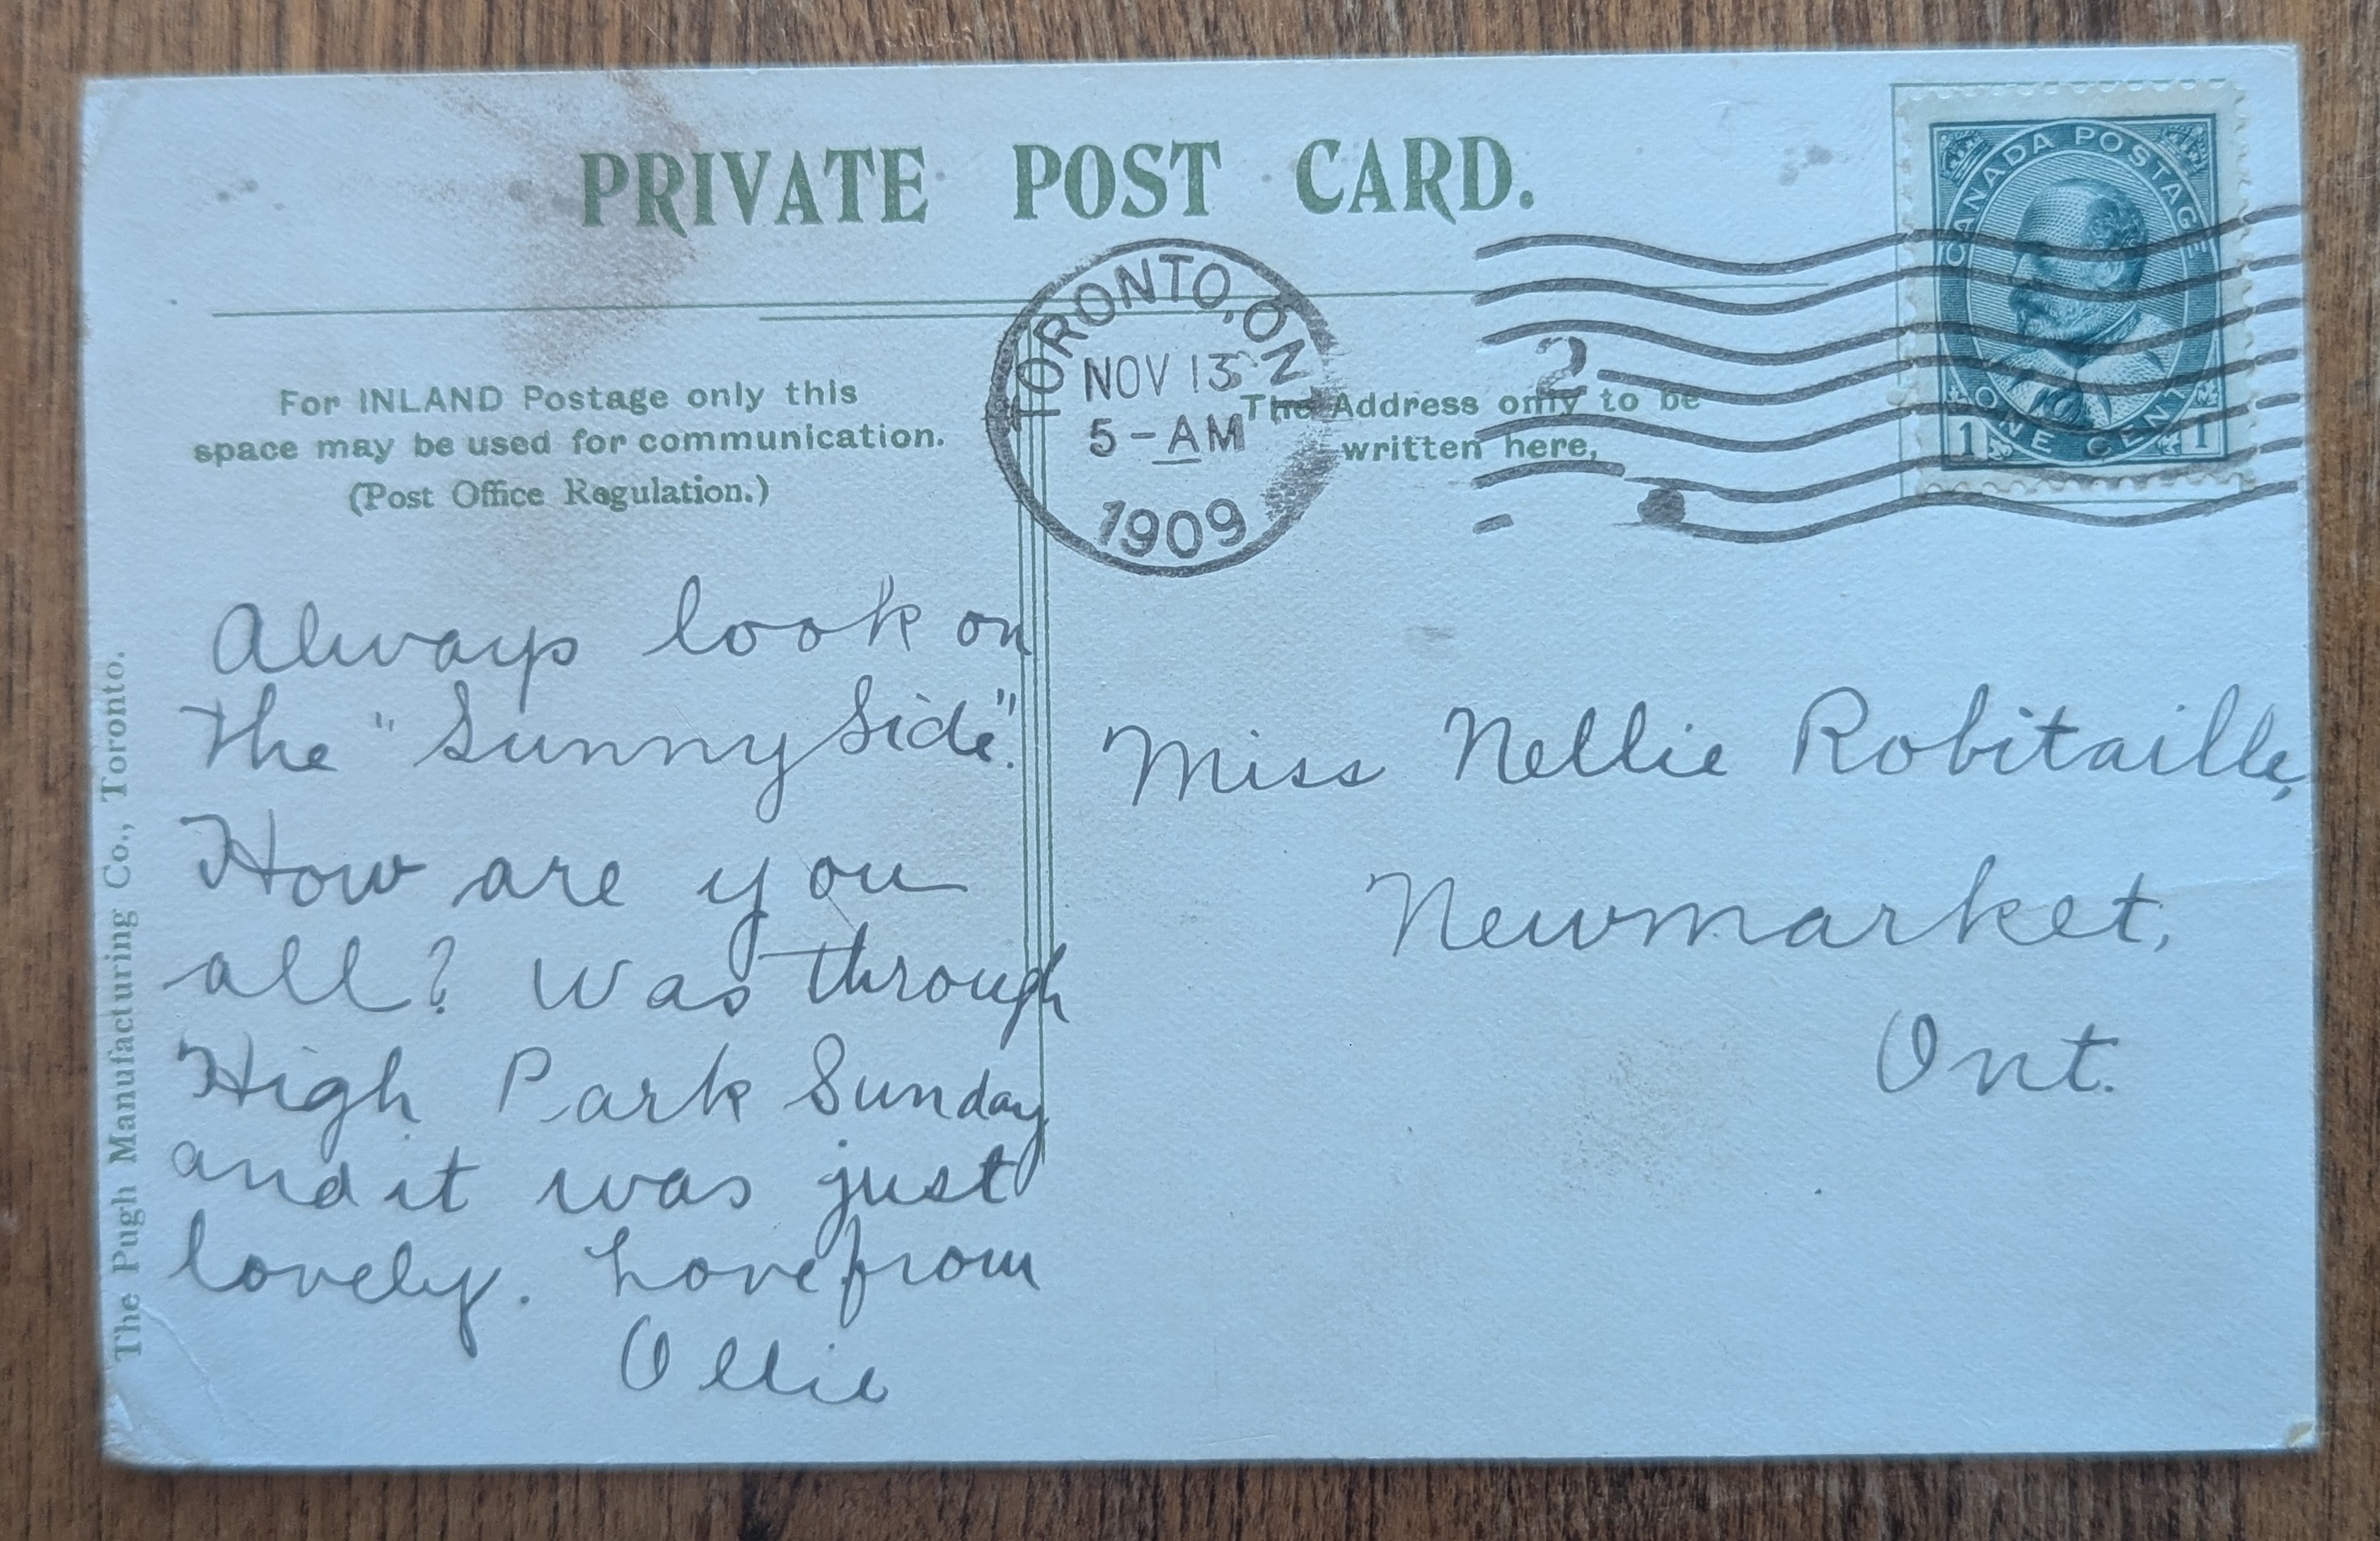 PRIVATE POST CARD.
CANADA POSTAGE
ONE CENT
1 1
TORONTO, ON
NOV 13
5-AM
1909
2
For INLAND Postage only this
space may be used for communication.
(Post Office Regulation.)
The Address only to be
written here,
Always look on
the "Sunny Side".
How are you
all? Was through
High Park Sunday
and it was just
lovely. Love from
Ollie
Miss Nellie Robitaille,
Newmarket,
Ont.
The Pugh Manufacturing Co., Toronto.